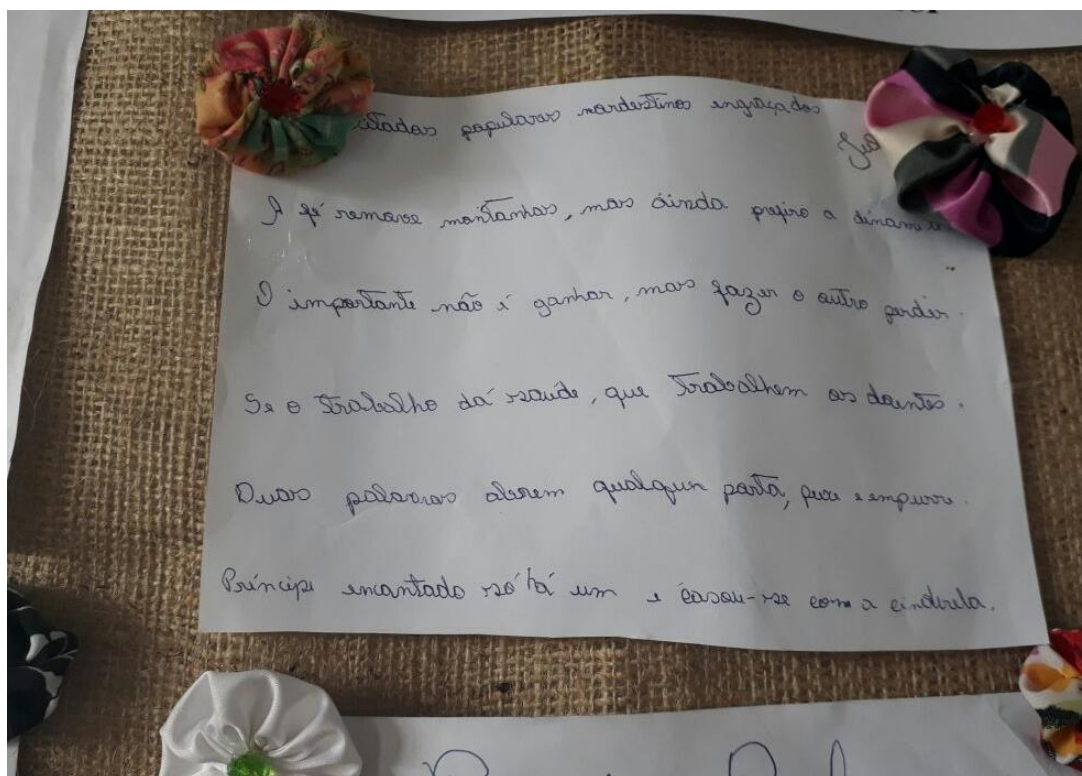 citados populares nordestinos engraçados
A fé remove montanhas, mas ainda prefiro a
O importante não é ganhar, mas fazer o outro perder.
Se o trabalho dá saúde, que trabalhem os doentes.
Duas palavras abrem qualquer porta, puxe e empurre.
Príncipe encantado só há um e casou-se com a cinderela.